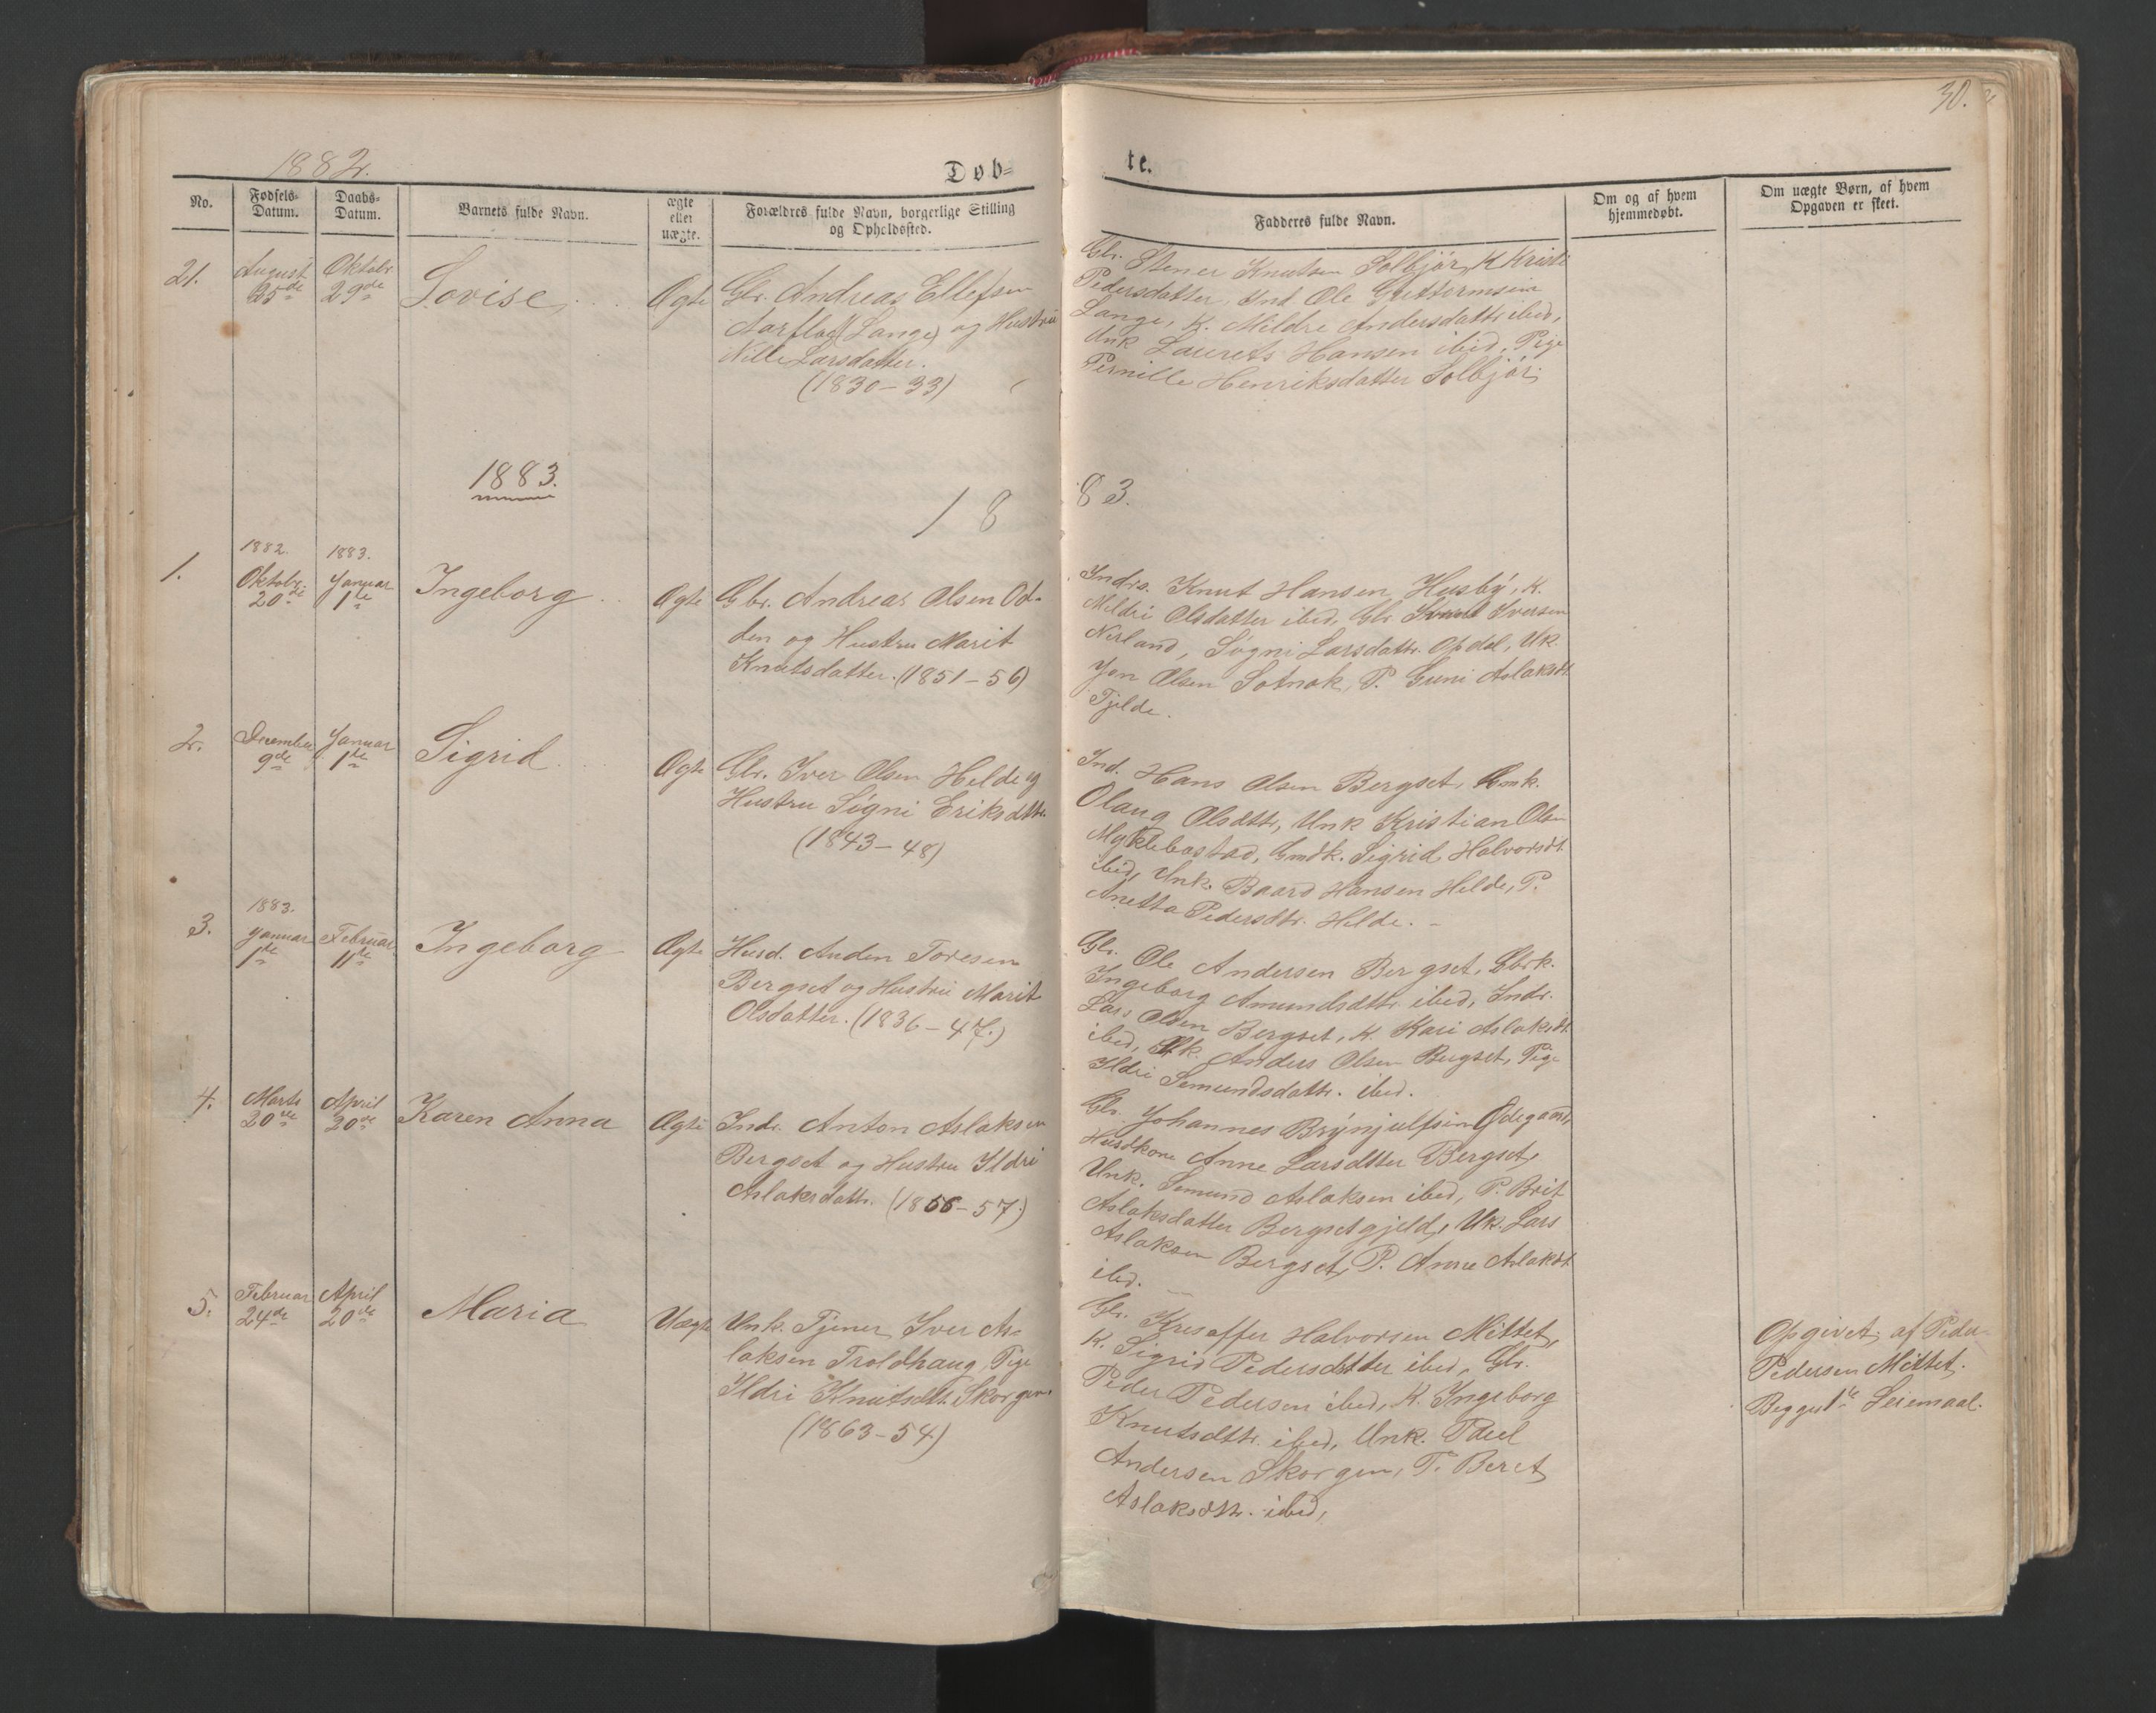 1882.
Døb=
No.
Fødsels-
Datum.
Daabs-
Datum.
Barnets fulde Navn.
ægte
eller
uægte.
Forældres fulde Navn, borgerlige Stilling
og Opholdssted.
21.
August
25de
Oktobr
29de
Lovise
Ægte
Gbr. Andreas Ellefsen
Aarflod (Lange) og Hustru
Nille Larsdatter.
(1830-33)
1883.
18
1.
1882.
Oktobr.
20de
1883.
Januar
1te
Ingeborg
Ægte
Gbr. Andreas Olsen Od-
den og Hustru Marit
Knutsdatter. (1851-56)
2.
December
9de
Januar
1te
Sigrid
Ægte
Gbr. Iver Olsen Helde og
Hustru Signi Eriksdttr.
(1843-48)
3.
1883.
Januar
1te
Februar
11te
Ingeborg
Ægte
Husd. Anden Toresen
Bergset og Hustru Marit
Olsdatter. (1836-47.)
4.
Marts
20de
April
20de
Karen Anna
Ægte
Indr. Anton Aslaksen
Bergset og Hustru Ildri
Aslaksdattr. (1856-57.)
5.
Februar
24de
April
20de
Maria
Uægte
Unk. Tjener Iver As-
laksen Troldhaug, Pige
Ildri Knutsdtr. Skorgen.
(1863-54)
30.
te.
Fadderes fulde Navn.
Om og af hvem
hjemmedøbt.
Om uægte Børn, af hvem
Opgaven er skeet.
Gbr. Stener Knutsen Solbjør, K Kristi
Pedersdatter, Ole Guttormsen
Lange, K. Mildre Andersdattr ibid,
Unk Laurets Hansen ibid, Pige
Pernille Henriksdatter Solbjør.
83.
Indrs. Knut Hansen Husby, K.
Mildri Olsdatter ibid, Gbr Iversen
Nerland, Søgni Larsdattr. Opdøl, Uk.
Jon Olsen Sotnak, P. Guni Aslaksdt.
Tjelde.
Ind. Hans Olsen Bergset, Gmk.
Olaug Olsdttr, Unk Kristian Olsen
Myklebostad, Gmdk. Sigrid Halvorsdt.
ibid, Unk. Baard Hansen Helde, P.
Anetta Pedersdtr. Helde.
Gbr. Ole Andersen Bergset, Gbrk.
Ingeborg Amundsdttr. ibid, Indr.
Lars Olsen Bergset, K. Kari Aslaksdt.
ibid, Uk. Anders Olsen Bergset, Pige
Ildri Semundsdattr. ibid.
Gbr. Johannes Brynjulfsen Ødegaard,
Husdkone Anne Larsdtter Bergset,
Unk. Semund Aslaksen ibid, P. Brit
Aslaksdatter Bergsetgjeld, Uk. Lars
Aslaksen Bergset, P. Anne Aslakdt.
ibid.
Gbr. Kristoffer Halvorsen Mittet,
K. Sigrid Pedersdatter ibid, Gbr.
Peder Pedersen ibid, K. Ingeborg
Knutsdttr. ibid, Unk. Poul
Andersen Skorgen, P. Beret
Aslaksdtr. ibid,
Opgivet af Peder
Pedersen Mittet.
Begges 1te Leiemaal.